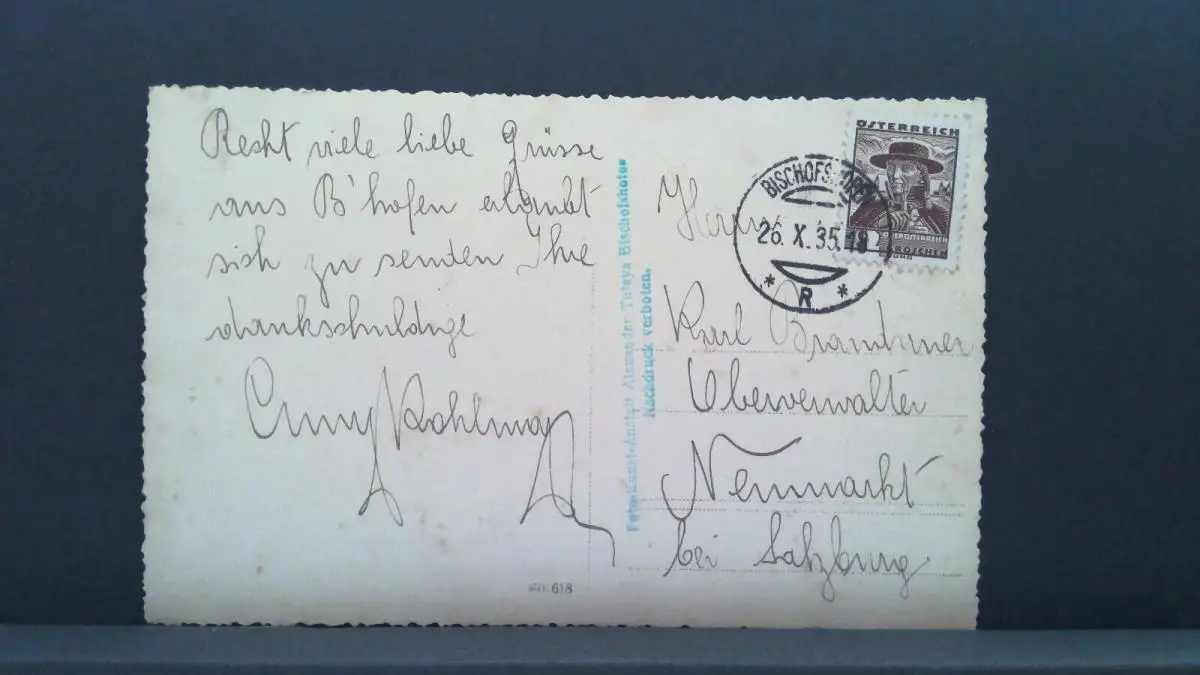 Recht viele liebe Grüsse
aus B'hofen erlaubt
sich zu senden Ihre
dankschuldige
618
Foto-Kunst-Anstalt Alexander Tutsya Bischofshofen
Nachdruck verboten.
ÖSTERREICH
OBERÖSTERREICH
GROSCHEN
BISCHOFSHOFEN
26. X. 35. 18
* R *
Herrn
Karl Brandtner
Oberverwalter
Neumarkt
bei Salzburg